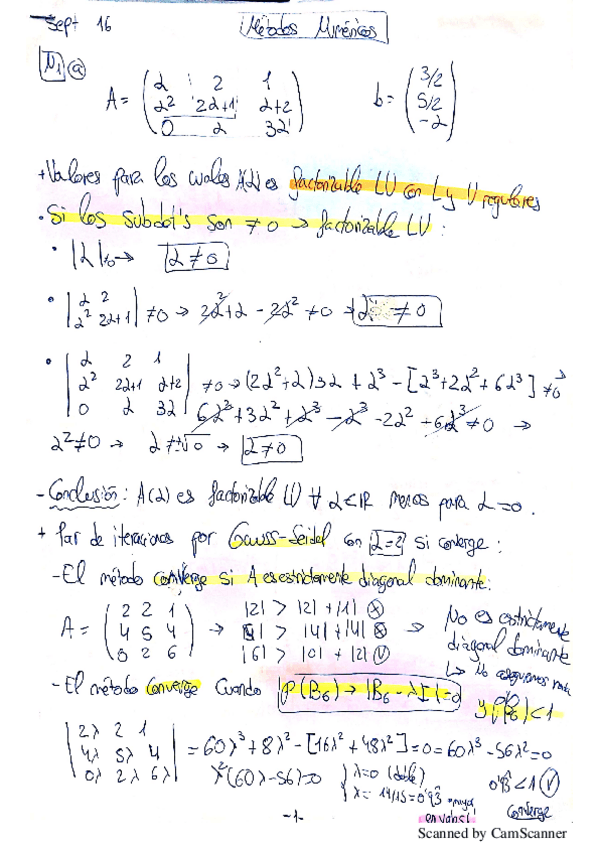 Sept 16 Métodos Numéricos
N1 a
A = ( α 2 1
α² 2α+1 α+2
0 α 3α )
b = ( 3/2
5/2
-2 )
+ Valores para los cuales A(α) es factorizable LU con L y U regulares
• Si los subdet's son ≠ 0 → factorizable LU:
• |α| ≠0 → α ≠ 0
• | α 2
α² 2α+1 | ≠0 → 2α² + α - 2α² ≠ 0 → α ≠ 0
• | α 2 1
α² 2α+1 α+2
0 α 3α | ≠0 → (2α²+α)3α + α³ - [α³+2α²+6α³] ≠0 →
6α³+3α²+α³ - α³ -2α² -6α³ ≠ 0 →
α² ≠0 → α ≠ ±√0 → α ≠ 0
- Conclusión: A(α) es factorizable LU ∀ α ∈ IR menos para α = 0.
+ Par de iteraciones por Gauss-Seidel con α=2 si converge:
- El método converge si A es estrictamente diagonal dominante:
A = ( 2 2 1
4 5 4
0 2 6 ) →
|2| > |2| + |1| ⓧ
|5| > |4| + |4| ⓧ
|6| > |0| + |2| Ⓥ
→ No es estrictamente
diagonal dominante
- El método converge cuando ρ(B_G) → |B_G - λI| = 0 y ρ(B_G) < 1
| 2λ 2 1
4λ 5λ 4
0λ 2λ 6λ | = 60λ³ + 8λ² - [16λ² + 48λ²] = 0 = 60λ³ - 56λ² = 0
λ²(60λ - 56) = 0 { λ=0 (doble)
λ = 14/15 = 0'93 mayor
en valabs!
0'93 < 1 Ⓥ
Converge
-1-
Scanned by CamScanner